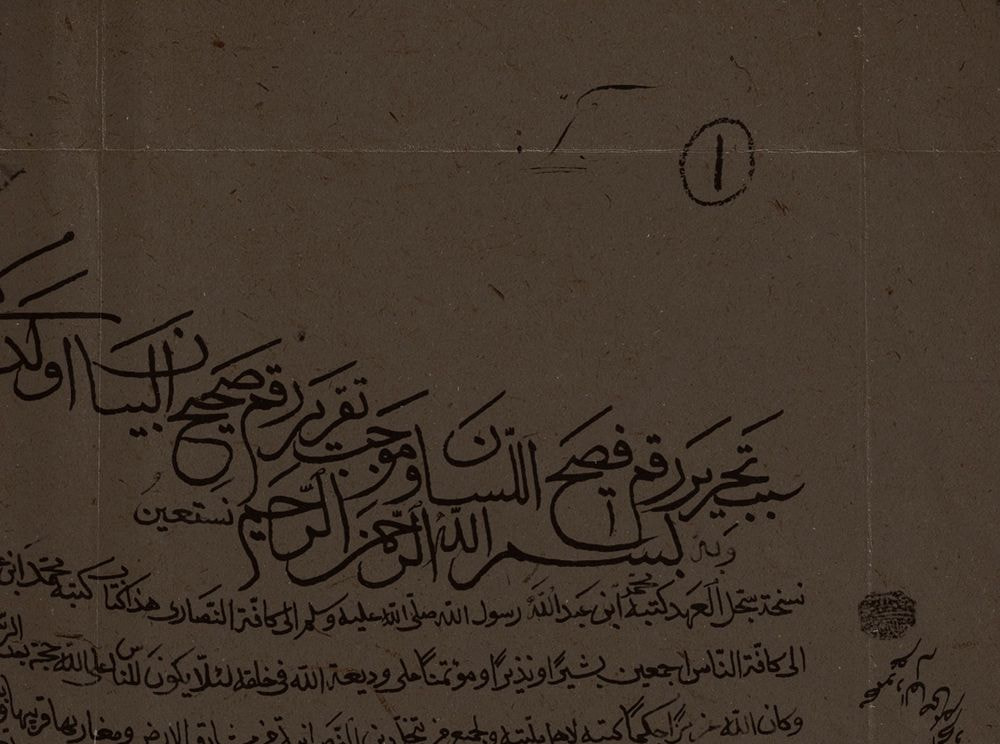 ١
سبب تحرير رقم فصيح اللسان و موجب تقرير رقم صحيح البيان اولدر
وبه بسم الله الرحمن الرحيم نستعين
نسخة سجل العهد كتبه محمد ابن عبد الله رسول الله صلى الله عليه وسلم الى كافة النصارى هذا كتاب كتبه محمد ابن
الى كافة الناس اجمعين بشيرًا ونذيرًا ومؤتمنًا على وديعة الله في خلقه لئلا يكون للناس على الله حجة بعد الر
وكان الله عزيزًا حكيمًا كتبه لاهل ملته ولجميع من ينتحل دين النصرانية من مشارق الارض ومغاربها قريبها